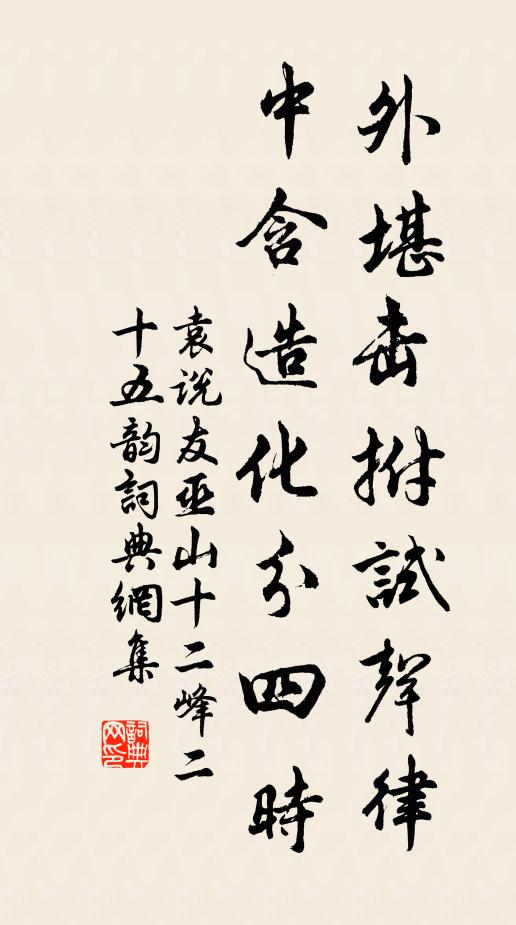 外堪击拊試聲律
中含造化分四時
袁说友巫山十二峰二
十五韵詞典網集
詞典
网印